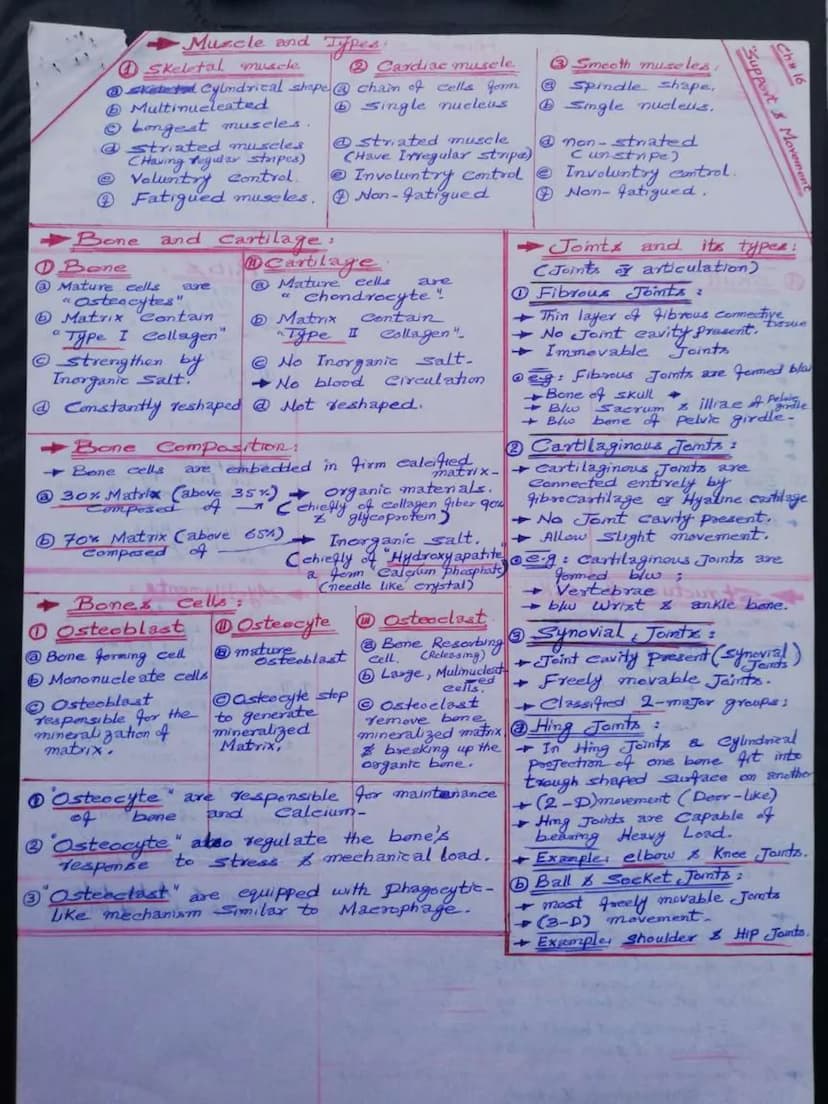 → Muscle and Types:
Ch# 16
"Support & Movement"
① Skeletal muscle
ⓐ Cylindrical shape
ⓑ Multinucleated
ⓒ Longest muscles.
ⓓ Striated muscles
(Having regular stripes)
ⓔ Voluntry control.
ⓕ Fatigued muscles.
② Cardiac muscle
ⓐ Chain of cells form
ⓑ Single nucleus
ⓓ Striated muscle
(Have Irregular stripe)
ⓔ Involuntry control
ⓕ Non-fatigued
③ Smooth muscles:
ⓐ Spindle shape.
ⓑ Single nucleus.
ⓓ non-striated
(unstripe)
ⓔ Involuntry control.
ⓕ Non-fatigued.
→ Bone and Cartilage:
Ⓘ Bone
ⓐ Mature cells are
"Osteocytes"
ⓑ Matrix Contain
"Type I Collagen"
ⓒ Strengthen by
Inorganic Salt.
ⓓ Constantly reshaped
Ⓘⓘ Cartilage
ⓐ Mature Cells are
"Chondrocyte".
ⓑ Matrix Contain
"Type II Collagen".
ⓒ No Inorganic Salt.
→ No blood Circulation
ⓓ Not reshaped.
→ Bone Composition:
→ Bone cells are embedded in firm calcified
matrix-
ⓐ 30% Matrix (above 35%) → Organic materials.
composed of → (chiefly of collagen fiber
& glycoprotein)
ⓑ 70% Matrix (above 65%) → Inorganic Salt.
composed of (chiefly of "Hydroxyapatite"
a form Calcium phosphate)
(needle like crystal)
→ Bones Cells:
① Osteoblast
ⓐ Bone forming cell
ⓑ Mononucleate cells
ⓒ Osteoblast
responsible for the
mineralization of
matrix.
Ⓘⓘ Osteocyte
ⓐ mature
osteoblast
ⓒ Osteocyte stop
to generate
mineralized
Matrix.
ⓘⓘⓘ Osteoclast
ⓐ Bone Resorbing
cell. (Releasing)
ⓑ Large, Mulinucleat-
ed cells.
ⓒ Osteoclast
remove bone
mineralized matrix
& breaking up the
organic bone.
① "Osteocyte" are responsible for maintenance
of bone and Calcium-
② "Osteocyte" also regulate the bone's
response to stress & mechanical load.
③ "Osteoclast" are equipped with phagocytic-
like mechanism similar to Macrophage.
→ Joints and its types:
(Joints or articulation)
① Fibrous Joints:
→ Thin layer of fibrous connective
tissue
→ No Joint cavity present.
→ Immovable Joints
e.g: Fibrous Joints are formed b/w
→ Bone of skull
→ B/w Sacrum & illiac of pelvic
girdle
→ B/w bone of pelvic girdle-
② Cartilaginous Joints:
→ Cartilaginous Joints are
connected entirely by
fibrocartilage or Hyaline cartilage
→ No Joint cavity present.
→ Allow slight movement.
e.g: Cartilaginous Joints are
formed b/w;
→ Vertebrae
→ b/w wrist & ankle bone.
③ Synovial Joints:
→ Joint cavity present (synovial
Joints)
→ Freely movable Joints.
→ Classified 2-major groups:
ⓐ Hing Joints:
→ In Hing Joints a Cylindrical
projection of one bone fit into
trough shaped surface on another
→ (2-D)movement (Door-like)
→ Hing Joints are Capable of
bearing Heavy Load.
→ Example: elbow & Knee Joints.
ⓑ Ball & Socket Joints:
→ most freely movable Joints
→ (3-D) movement-
→ Example: Shoulder & Hip Joints.